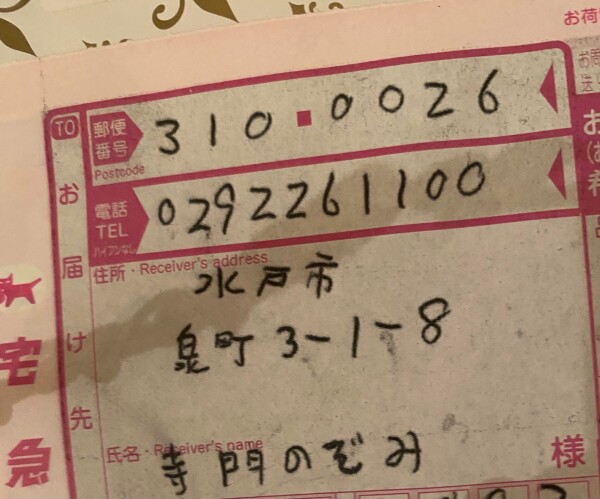 お荷
TO
郵便番号 310-0026
Postcode
電話 TEL 0292261100
ハイフンなし
お届け先
住所・Receiver's address
水戸市
泉町3-1-8
氏名・Receiver's name
寺門のぞみ 様
宅急